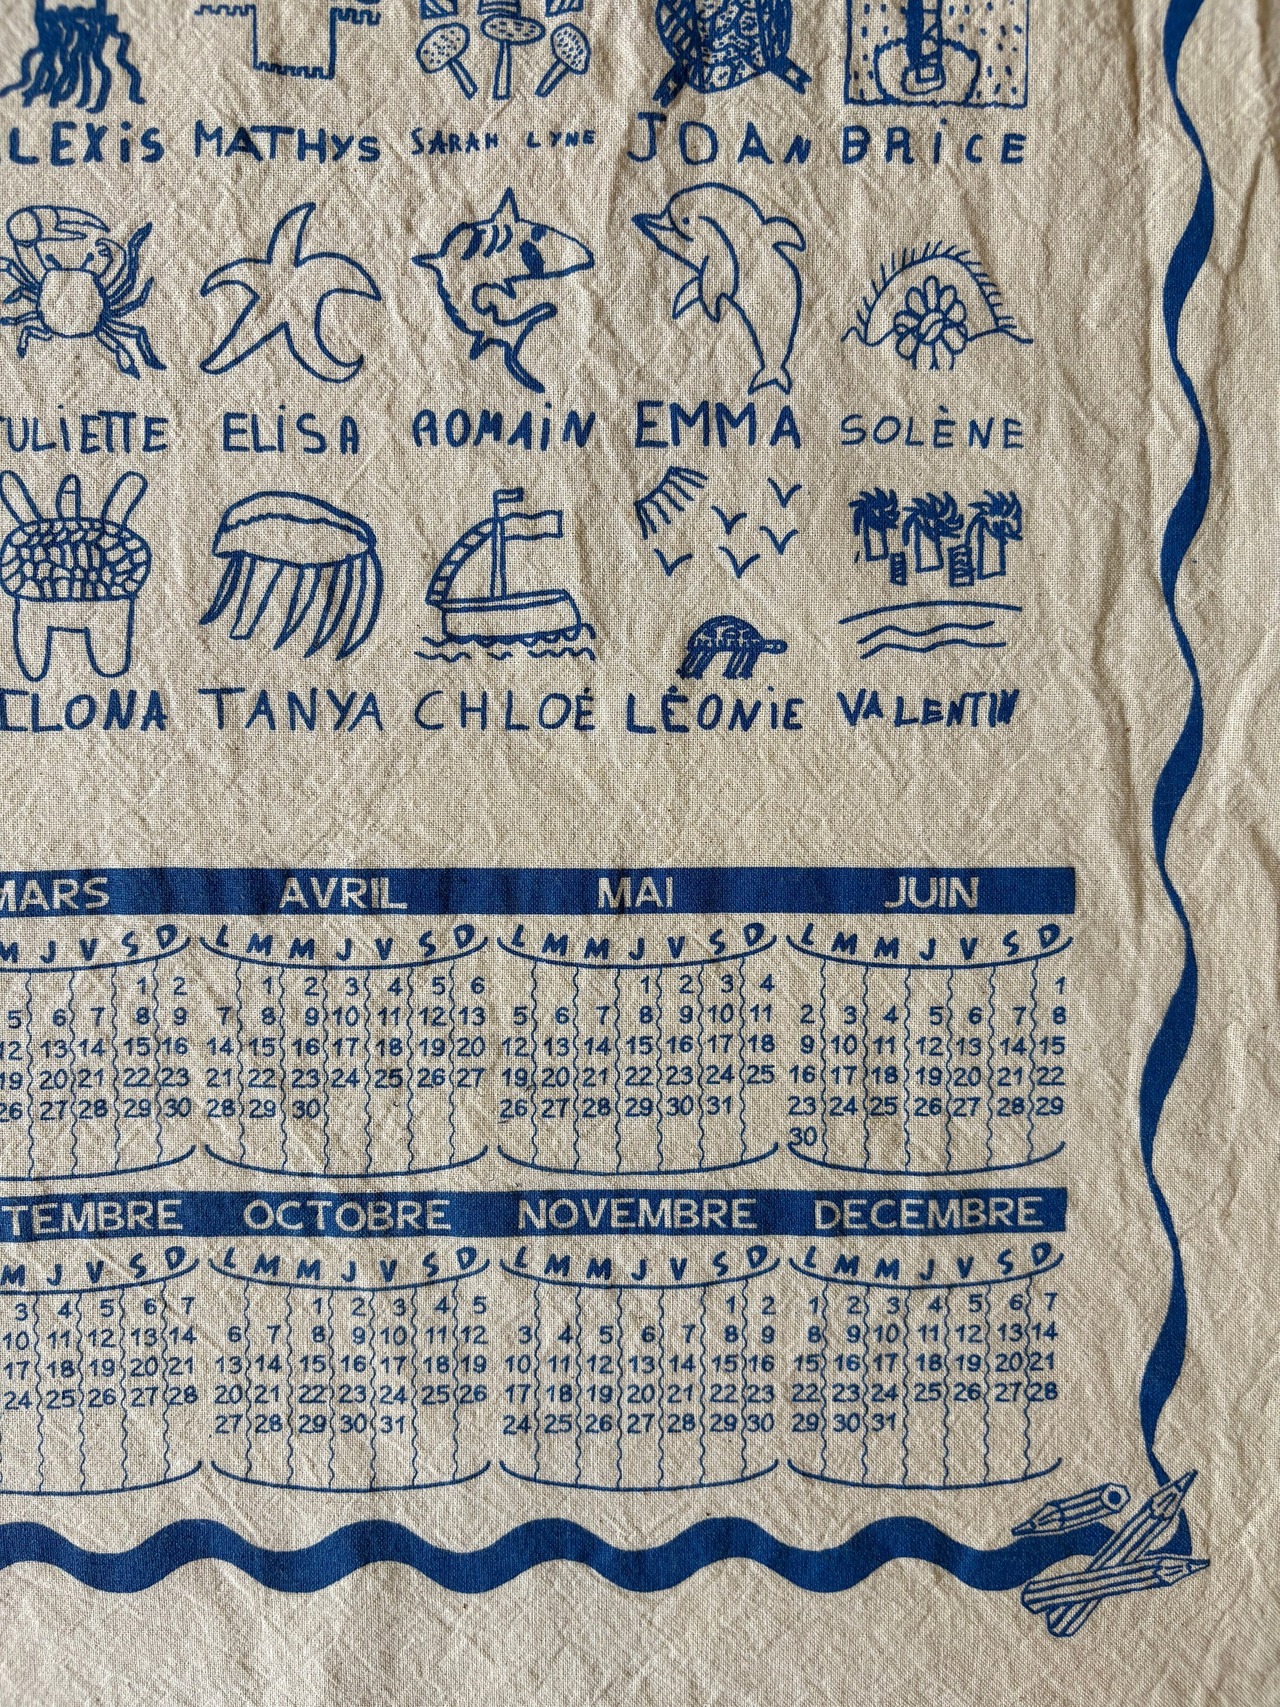 LEXiS MATHYS SARAH LYNE JOAN BRiCE
JULiETTE ELiSA ROMAiN EMMA SOLÈNE
ILONA TANYA CHLOÉ LÉONiE VALENTIN
MARS
M J V S D
1 2
5 6 7 8 9
12 13 14 15 16
19 20 21 22 23
26 27 28 29 30
AVRIL
L M M J V S D
1 2 3 4 5 6
7 8 9 10 11 12 13
14 15 16 17 18 19 20
21 22 23 24 25 26 27
28 29 30
MAI
L M M J V S D
1 2 3 4
5 6 7 8 9 10 11
12 13 14 15 16 17 18
19 20 21 22 23 24 25
26 27 28 29 30 31
JUIN
L M M J V S D
1
2 3 4 5 6 7 8
9 10 11 12 13 14 15
16 17 18 19 20 21 22
23 24 25 26 27 28 29
30
TEMBRE
M J V S D
3 4 5 6 7
10 11 12 13 14
17 18 19 20 21
24 25 26 27 28
OCTOBRE
L M M J V S D
1 2 3 4 5
6 7 8 9 10 11 12
13 14 15 16 17 18 19
20 21 22 23 24 25 26
27 28 29 30 31
NOVEMBRE
L M M J V S D
1 2
3 4 5 6 7 8 9
10 11 12 13 14 15 16
17 18 19 20 21 22 23
24 25 26 27 28 29 30
DECEMBRE
L M M J V S D
1 2 3 4 5 6 7
8 9 10 11 12 13 14
15 16 17 18 19 20 21
22 23 24 25 26 27 28
29 30 31